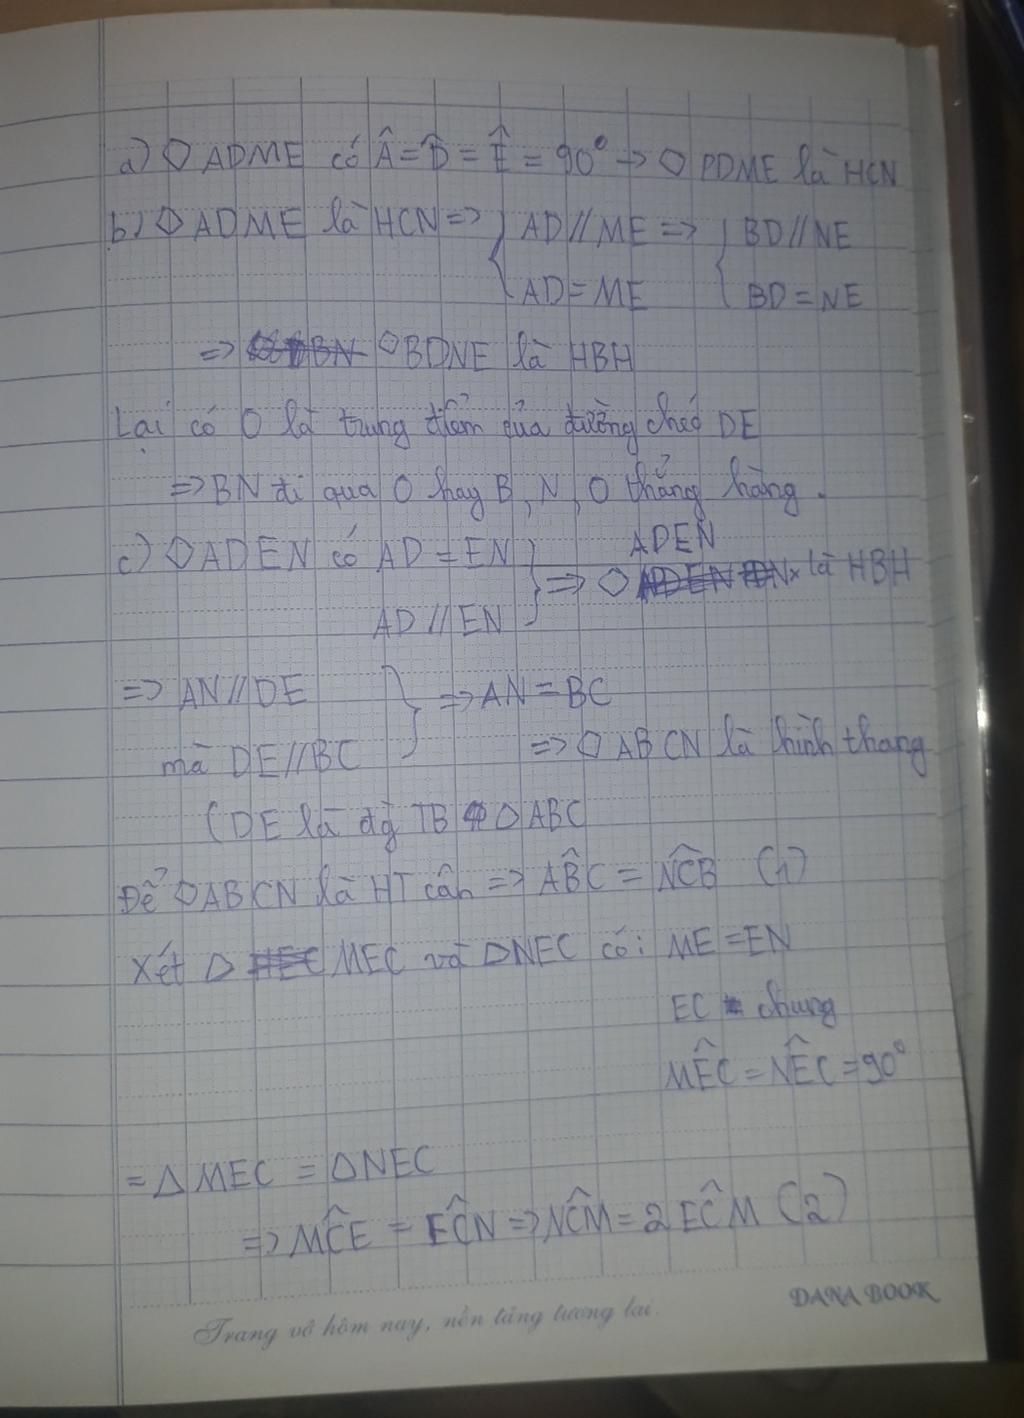 a) ◇ ADME có Â = D̂ = Ê = 90° → ◇ PDME là HCN
b) ◇ ADME là HCN => { AD // ME => { BD // NE
AD = ME BD = NE
=> ◇ BDNE là HBH
Lại có O là trung điểm của đường chéo DE
=> BN đi qua O hay B, N, O thẳng hàng.
c) ◇ ADEN có AD = EN } ADEN
AD // EN } => ◇ là HBH
=> AN // DE } => AN = BC
mà DE // BC => ◇ ABCN là hình thang
(DE là đg TB △ ABC
Để ◇ ABCN là HT cân => AB̂C = NĈB (1)
Xét △ MEC và △NEC có: ME = EN
EC chung
MÊC = NÊC = 90°
= △ MEC = △NEC
=> MĈE = EĈN => NĈM = 2 EĈM (2)
Trang vở hôm nay, nền tảng tương lai.
DANA BOOK